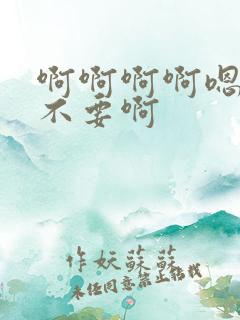 啊啊啊啊嗯
不要啊
作妖蘇蘇
未经同意禁止转载